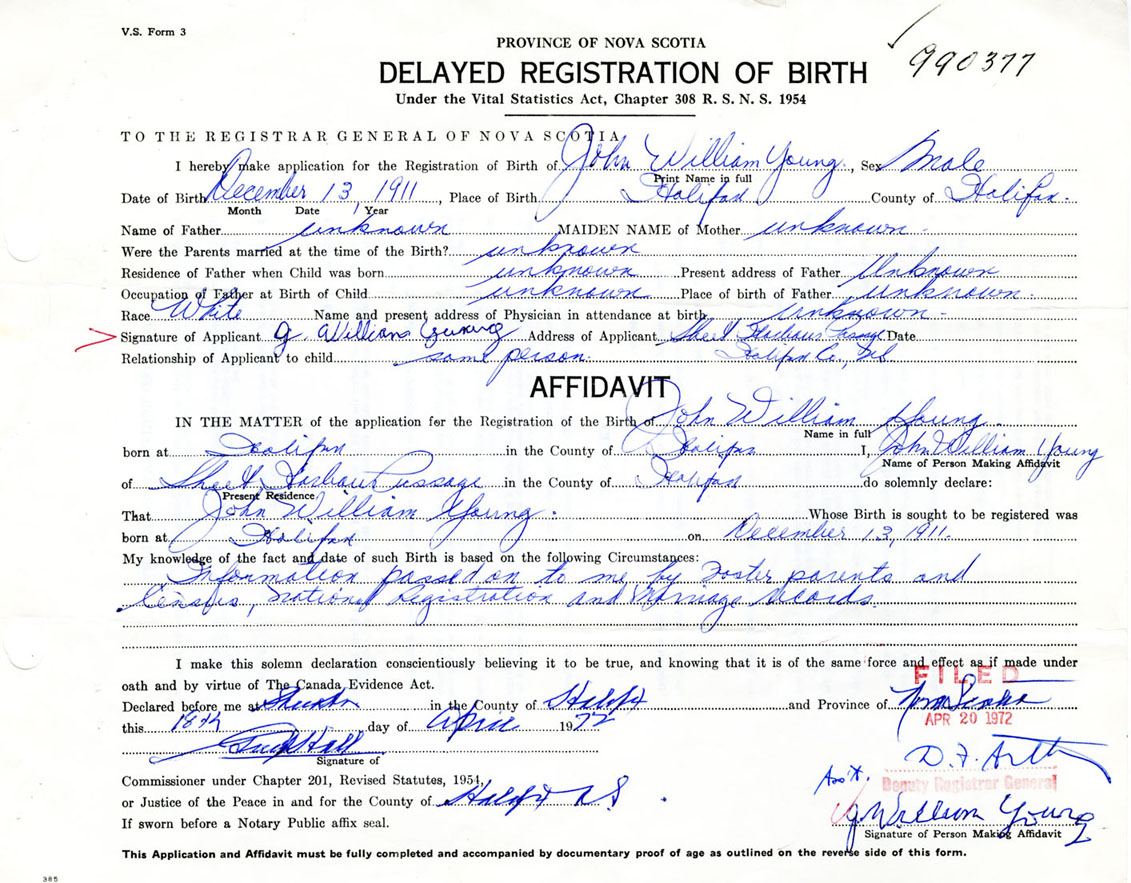 V.S. Form 3
PROVINCE OF NOVA SCOTIA
990377
DELAYED REGISTRATION OF BIRTH
Under the Vital Statistics Act, Chapter 308 R. S. N. S. 1954
TO THE REGISTRAR GENERAL OF NOVA SCOTIA
I hereby make application for the Registration of Birth of John William Young, Sex Male
Print Name in full
Date of Birth December 13, 1911, Place of Birth Halifax County of Halifax.
Month Date Year
Name of Father unknown MAIDEN NAME of Mother unknown
Were the Parents married at the time of the Birth? unknown
Residence of Father when Child was born unknown Present address of Father Unknown
Occupation of Father at Birth of Child unknown Place of birth of Father unknown
Race White Name and present address of Physician in attendance at birth unknown.
Signature of Applicant J. William Young Address of Applicant Sheet Harbour Date
Relationship of Applicant to child same person. Halifax Co.,
AFFIDAVIT
IN THE MATTER of the application for the Registration of the Birth of John William Young
Name in full
born at Halifax in the County of Halifax I, John William Young
Name of Person Making Affidavit
of Sheet Harbour Passage in the County of Halifax do solemnly declare:
Present Residence
That John William Young. Whose Birth is sought to be registered was
born at Halifax on December 13, 1911.
My knowledge of the fact and date of such Birth is based on the following Circumstances:
Information passed on to me by Foster parents and
Census, National Registration and Marriage Records.
I make this solemn declaration conscientiously believing it to be true, and knowing that it is of the same force and effect as if made under
oath and by virtue of The Canada Evidence Act.
FILED
Declared before me at in the County of Halifax and Province of Nova Scotia
this 18th day of April 1972
APR 20 1972
Signature of
D. F. Arth
Commissioner under Chapter 201, Revised Statutes, 1954,
Ass't. Deputy Registrar General
or Justice of the Peace in and for the County of Halifax N S
J William Young
If sworn before a Notary Public affix seal.
Signature of Person Making Affidavit
This Application and Affidavit must be fully completed and accompanied by documentary proof of age as outlined on the reverse side of this form.
385